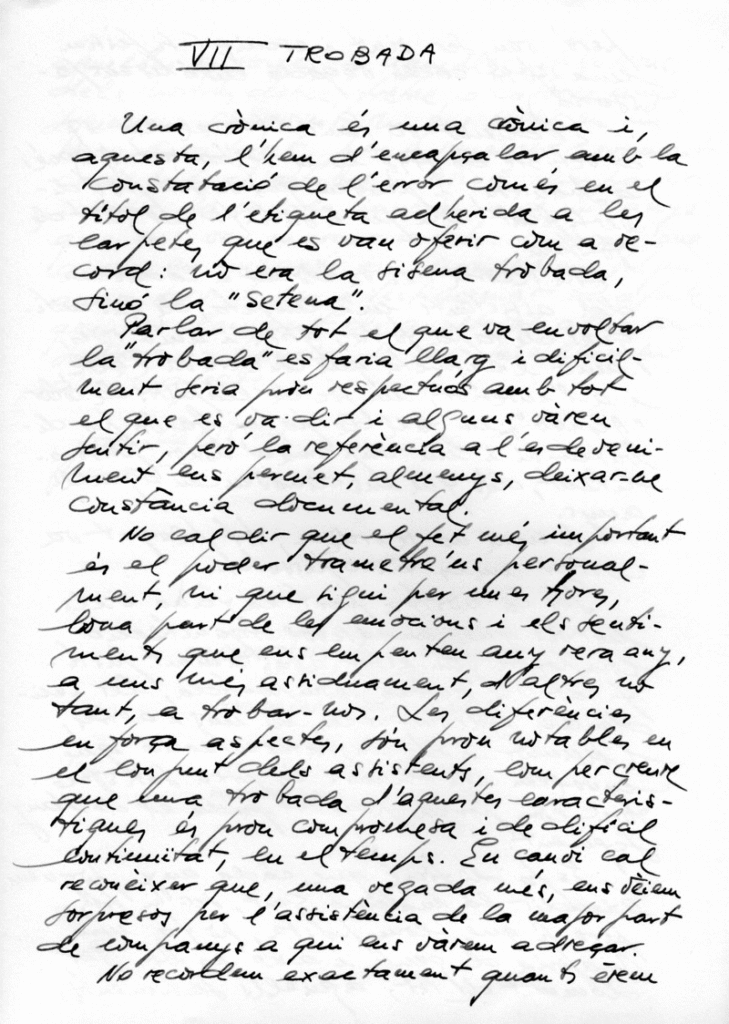 VII TROBADA
Una crònica és una crònica i,
aquesta, l'hem d'encapçalar amb la
constatació de l'error comés en el
títol de l'etiqueta adherida a les
carpetes que es van oferir com a re-
cord: no era la sisena trobada,
sinó la "setena".
Parlar de tot el que va envoltar
la "trobada" es faria llarg i dificil-
ment seria prou respectuós amb tot
el que es va dir i alguns vàrem
sentir, però la referència a l'esdeveni-
ment ens permet, almenys, deixar-ne
constància documental.
No cal dir que el fet més important
és el poder trametre'ns personal-
ment, ni que sigui per unes hores,
bona part de les emocions i els senti-
ments que ens empenten any rera any,
a uns més assiduament, d'altres no
tant, a trobar-nos. Les diferències
en força aspectes, són prou notables en
el conjunt dels assistents, com per creure
que una trobada d'aquestes caracterís-
tiques és prou compromesa i de difícil
continuïtat, en el temps. En canvi cal
reconèixer que, una vegada més, ens vèiem
sorpresos per l'assistència de la major part
de companys a qui ens vàrem adreçar.
No recordem exactament quants érem